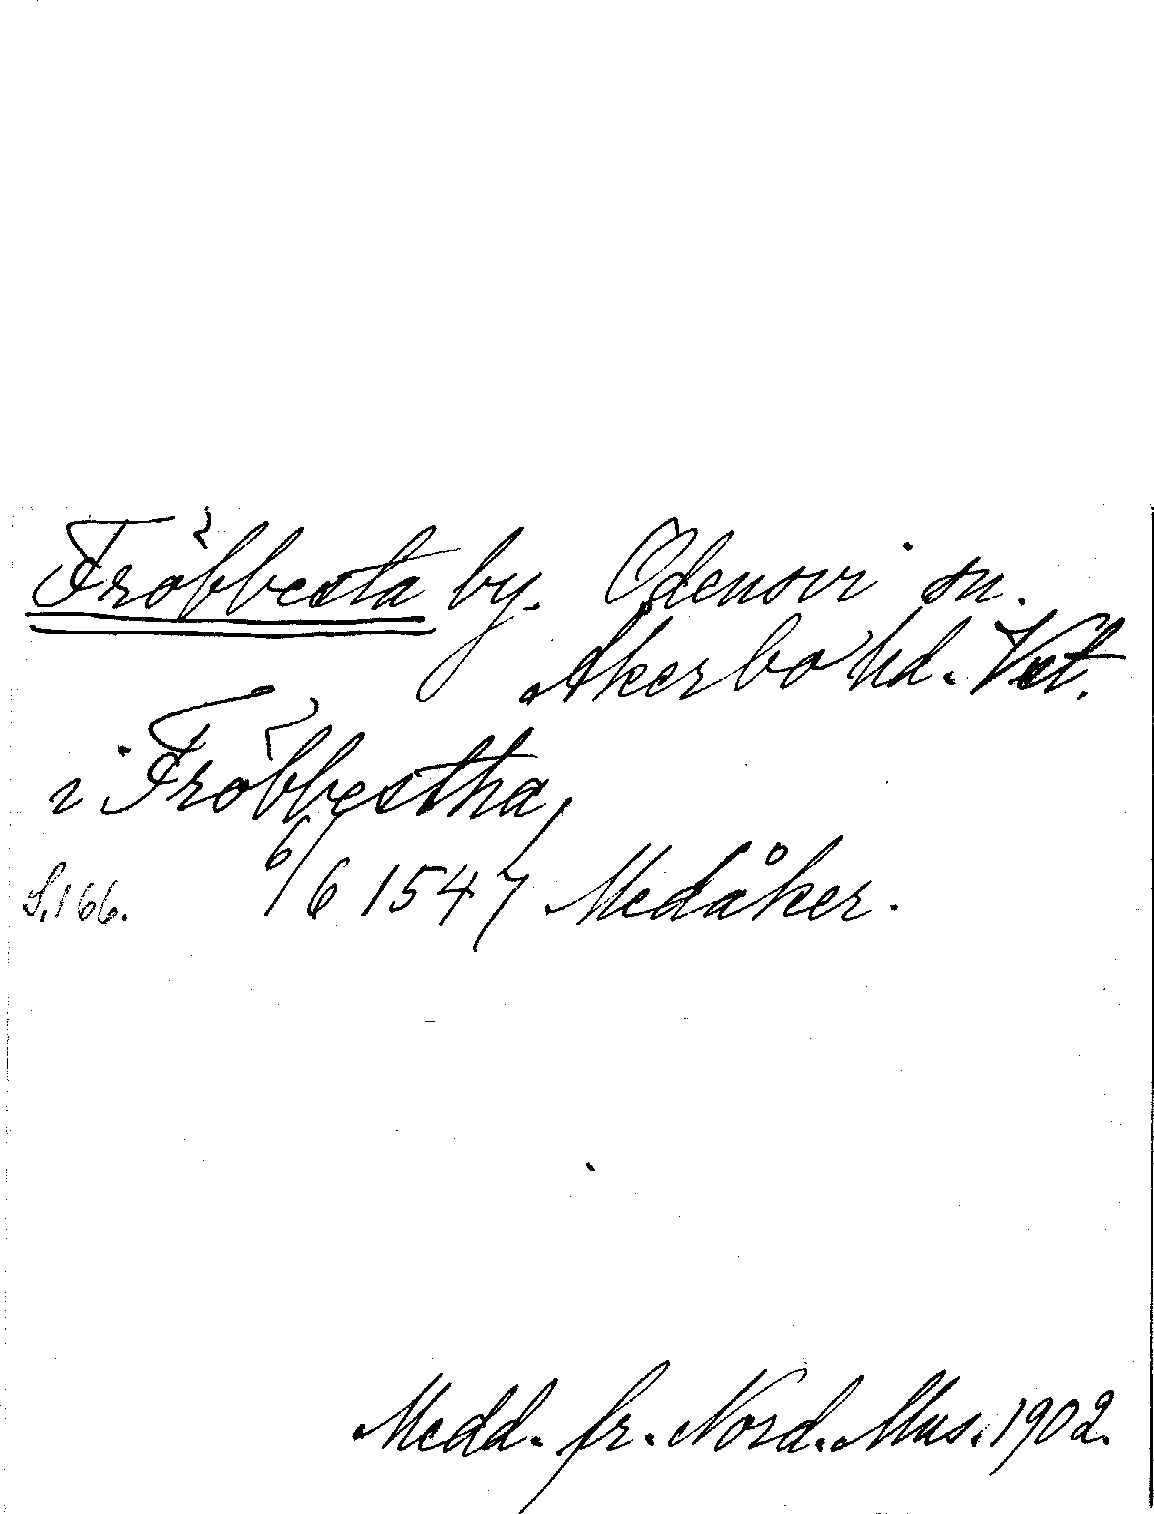 Fröbbesta by. Odensvi sn.
Åkerbo hd. Vstl.
i Fröbbestha,
S. 166. 6/6 1547 Medåker.
Medd. fr. Nord. Mus. 1902.